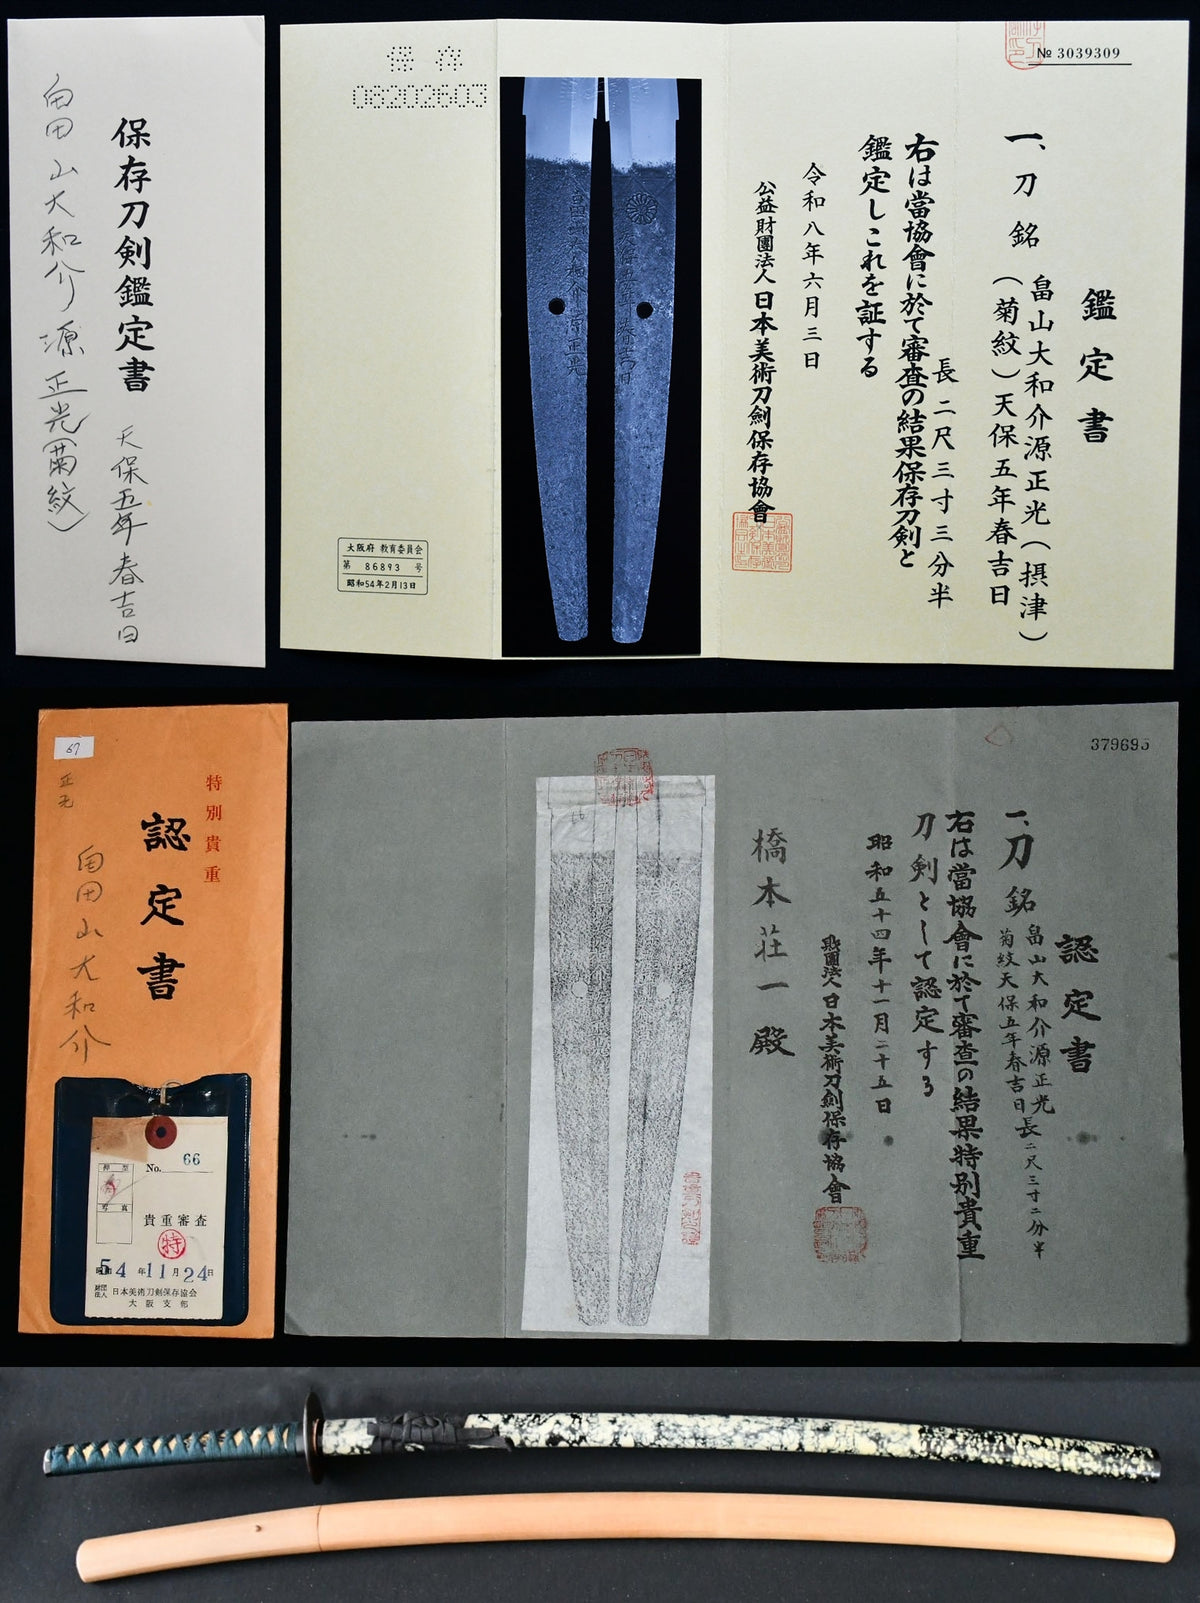 保存刀剣鑑定書
天保五年春吉日
畠山大和介源正光(菊紋)
保存
06202603
№ 3039309
鑑定書
一、刀 銘 畠山大和介源正光(摂津)
(菊紋)天保五年春吉日
長二尺三寸三分半
右は當協會に於て審査の結果保存刀剣と
鑑定しこれを証する
令和八年六月三日
公益財團法人日本美術刀劍保存協會
大阪府 教育委員会
第 86893 号
昭和54年2月13日
畠山大和介源正光
天保五年春吉日
67
特別貴重
認定書
正光
畠山大和介
No. 66
押型
写真
貴重審査
特
昭和54年11月24日
財団法人 日本美術刀剣保存協会
大阪支部
379695
認定書
一、刀 銘 畠山大和介源正光
菊紋天保五年春吉日 長二尺三寸二分半
右は當協會に於て審査の結果特別貴重
刀剣として認定する
昭和五十四年十一月二十五日
財團法人日本美術刀劍保存協會
橋本荘一殿